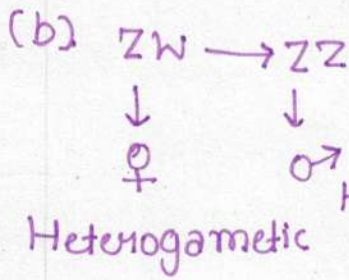 (b) ZW → ZZ
↓ ↓
♀ ♂
Heterogametic